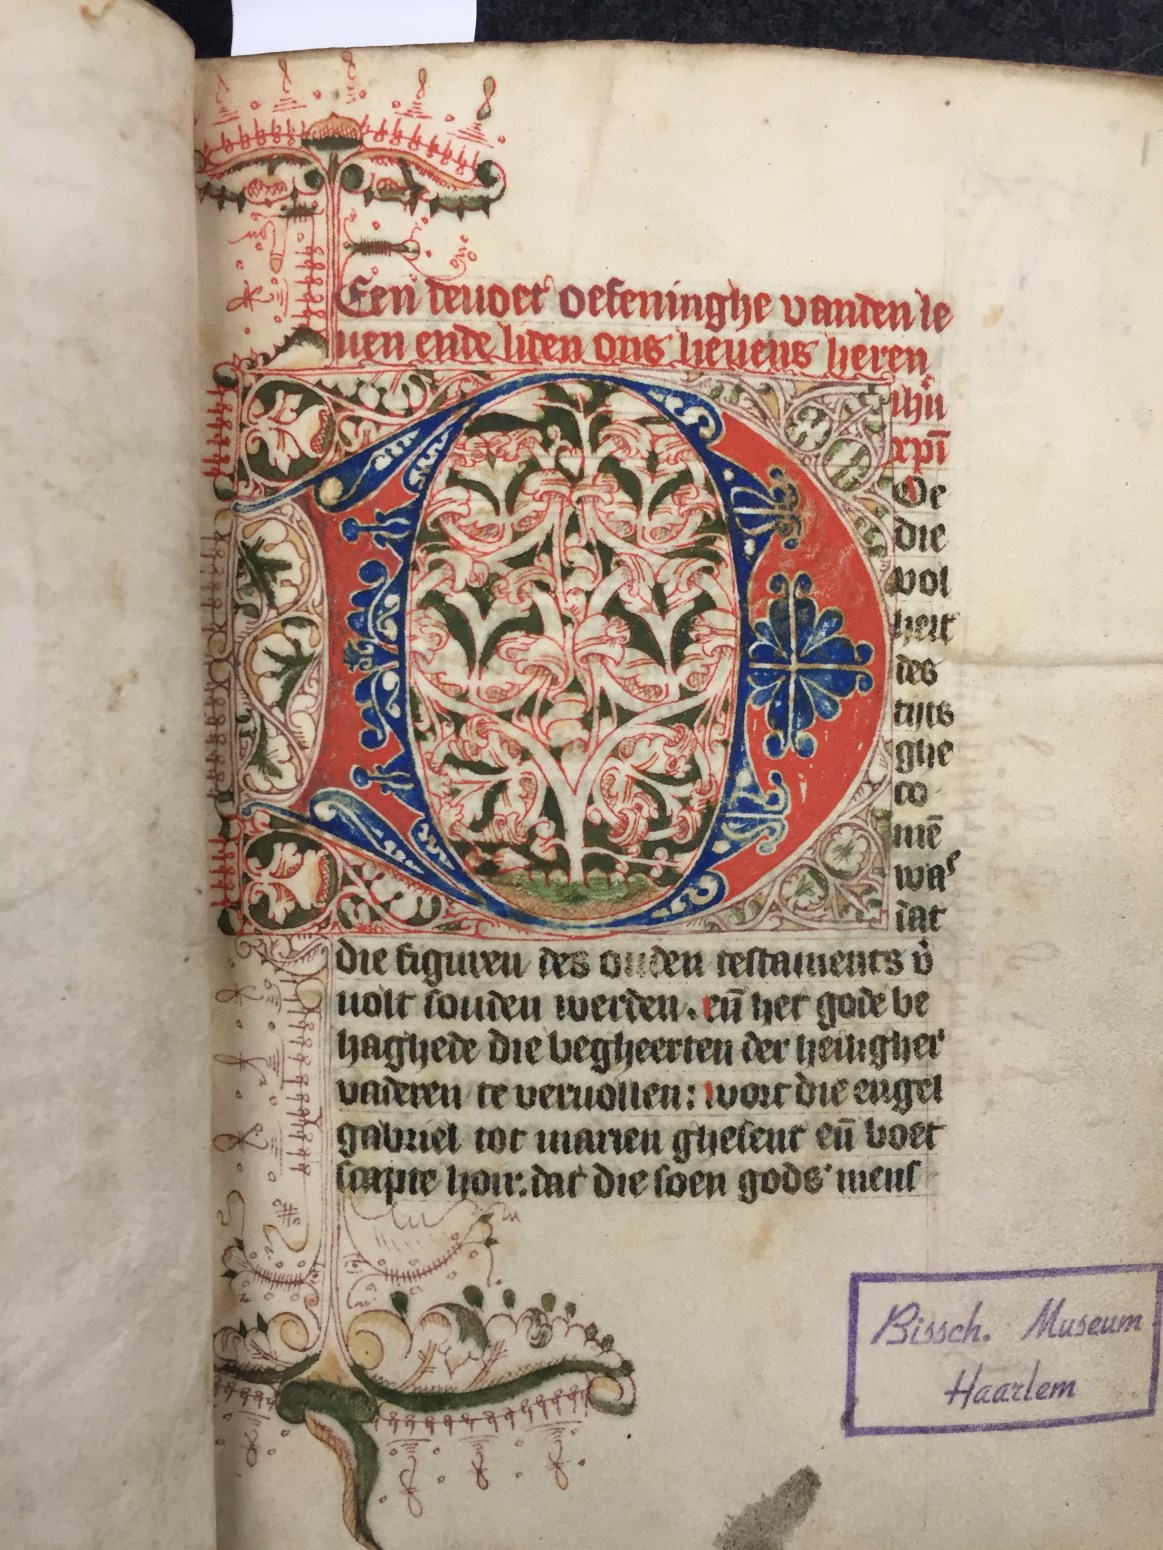 Een deuoet oefeninghe vanden le
uen ende liden ons lieuens heren
ihū
xpī
Oe
die
vol
heit
des
tijts
ghe
co
mē
was
dat
die figuren des ouden testaments v̄
uolt souden werden. eñ het gode be
haghede die begheerten der heiligher
vaderen te veruollen: wort die engel
gabriel tot marien ghesent eñ boet
scapte hoir. dat die soen gods mens
Bissch. Museum
Haarlem